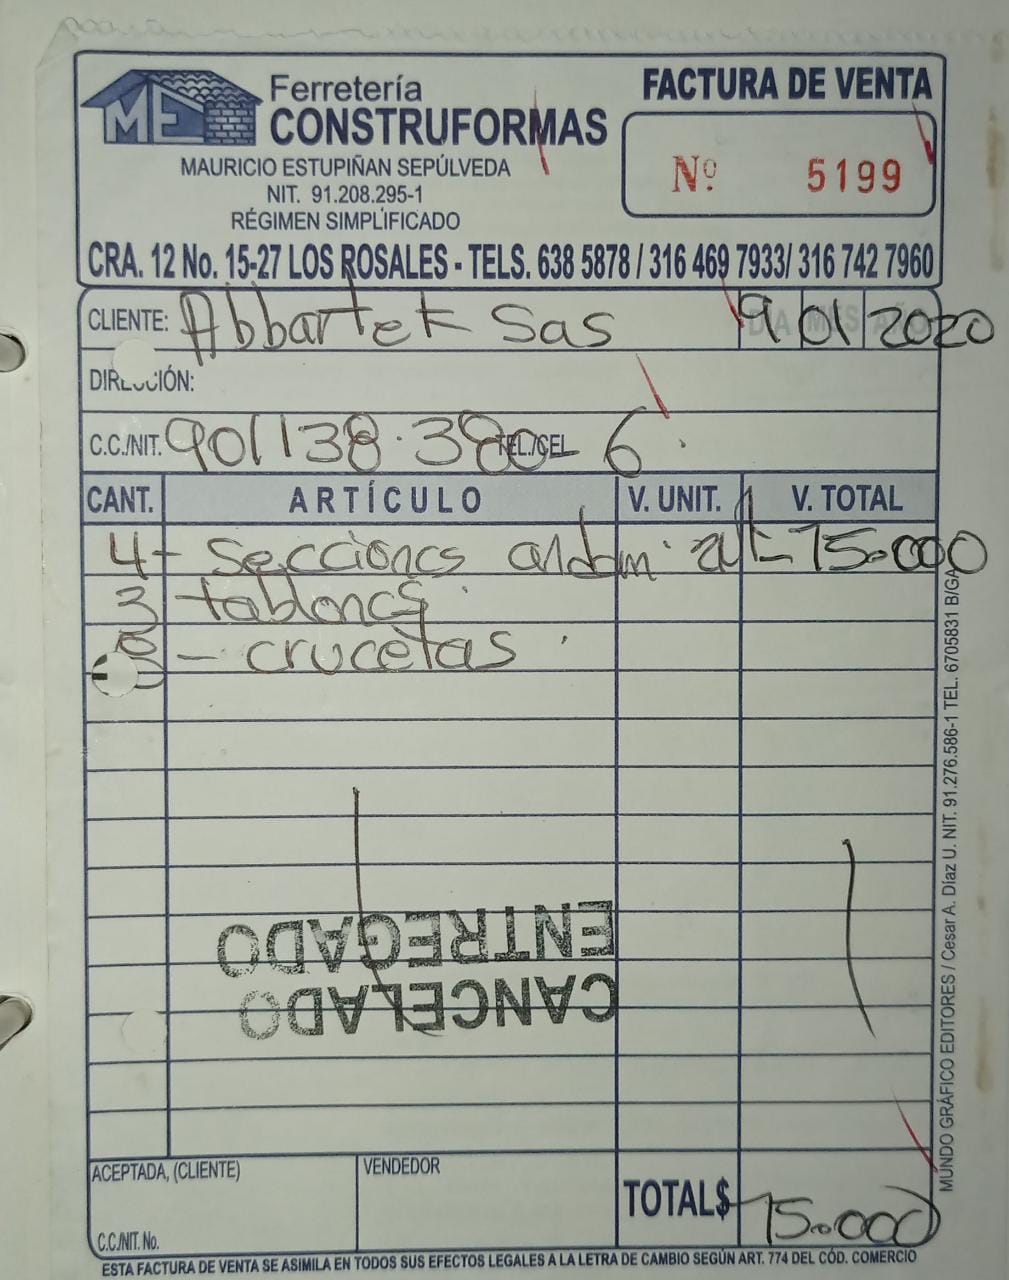 ME
Ferretería
CONSTRUFORMAS
MAURICIO ESTUPIÑAN SEPÚLVEDA
NIT. 91.208.295-1
RÉGIMEN SIMPLIFICADO
FACTURA DE VENTA
Nº 5199
CRA. 12 No. 15-27 LOS ROSALES - TELS. 638 5878 / 316 469 7933/ 316 742 7960
CLIENTE: Abbartek Sas DÍA MES AÑO 9 01 2020
DIRECCIÓN:
C.C./NIT. 901138.380- TEL./CEL 6
CANT. ARTÍCULO V. UNIT. V. TOTAL
4 - Secciones andam. 75.000
3 tablones
- crucetas
ENTREGADO
CANCELADO
ACEPTADA, (CLIENTE) VENDEDOR
C.C./NIT. No.
TOTAL $ 75.000
ESTA FACTURA DE VENTA SE ASIMILA EN TODOS SUS EFECTOS LEGALES A LA LETRA DE CAMBIO SEGÚN ART. 774 DEL CÓD. COMERCIO
MUNDO GRÁFICO EDITORES / Cesar A. Díaz U. NIT. 91.276.586-1 TEL. 6705831 B/GA